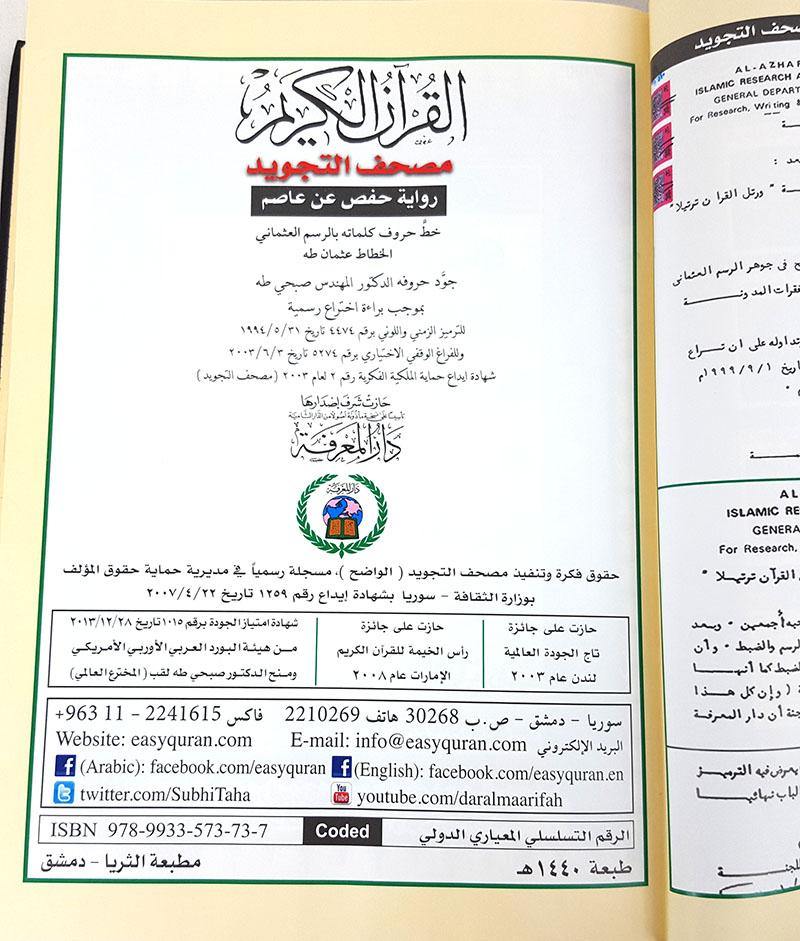 القرآن الكريم
مصحف التجويد
رواية حفص عن عاصم
خطَّ حروف كلماته بالرسم العثماني
الخطاط عثمان طه
جوَّد حروفه الدكتور المهندس صبحي طه
بموجب براءة اختراع رسمية
للترميز الزمني واللوني برقم ٤٤٧٤ تاريخ ١٩٩٤/٥/٣١
وللفراغ الوقفي الاختياري برقم ٥٢٧٤ تاريخ ٢٠٠٣/٦/٣
شهادة ايداع حماية الملكية الفكرية رقم ٢ لعام ٢٠٠٣ (مصحف التجويد)
حازت شرف إصدارها
دار المعرفة
دار المعرفة
حقوق فكرة وتنفيذ مصحف التجويد ( الواضح )، مسجلة رسمياً في مديرية حماية حقوق المؤلف
بوزارة الثقافة - سوريا بشهادة إيداع رقم ١٢٥٩ تاريخ ٢٠٠٧/٤/٢٢
حازت على جائزة
تاج الجودة العالمية
لندن عام ٢٠٠٣
حازت على جائزة
رأس الخيمة للقرآن الكريم
الإمارات عام ٢٠٠٨
شهادة امتياز الجودة برقم ١٠١٥ تاريخ ٢٠١٣/١٢/٢٨
من هيئة البورد العربي الأوربي الأمريكي
ومنح الدكتور صبحي طه لقب (المخترع العالمي)
سوريا - دمشق - ص.ب 30268 هاتف 2210269 فاكس 2241615 - 11 963+
البريد الإلكتروني E-mail: info@easyquran.com Website: easyquran.com
(Arabic): facebook.com/easyquran (English): facebook.com/easyquran.en
twitter.com/SubhiTaha You Tube youtube.com/daralmaarifah
ISBN 978-9933-573-73-7 Coded الرقم التسلسلي المعياري الدولي
طبعة ١٤٤٠هـ
مطبعة الثريا - دمشق
التجويد
AL-AZHAR
ISLAMIC RESEARCH
GENERAL
For Research, Writing &
" ورتل القرآن ترتيلا "
فى جوهر الرسم العثمانى
المدونة
تداوله على ان تراع
١٩٩٩/٩/١م
ISLAMIC
GENERAL
For Research,
القرآن ترتيلا "
أجمعين - وبعد
الرسم والضبط - وأن
الضبط كما أنها
( وإن كل هذا
أن دار المعرفة
فيه الترميز
نهائيا